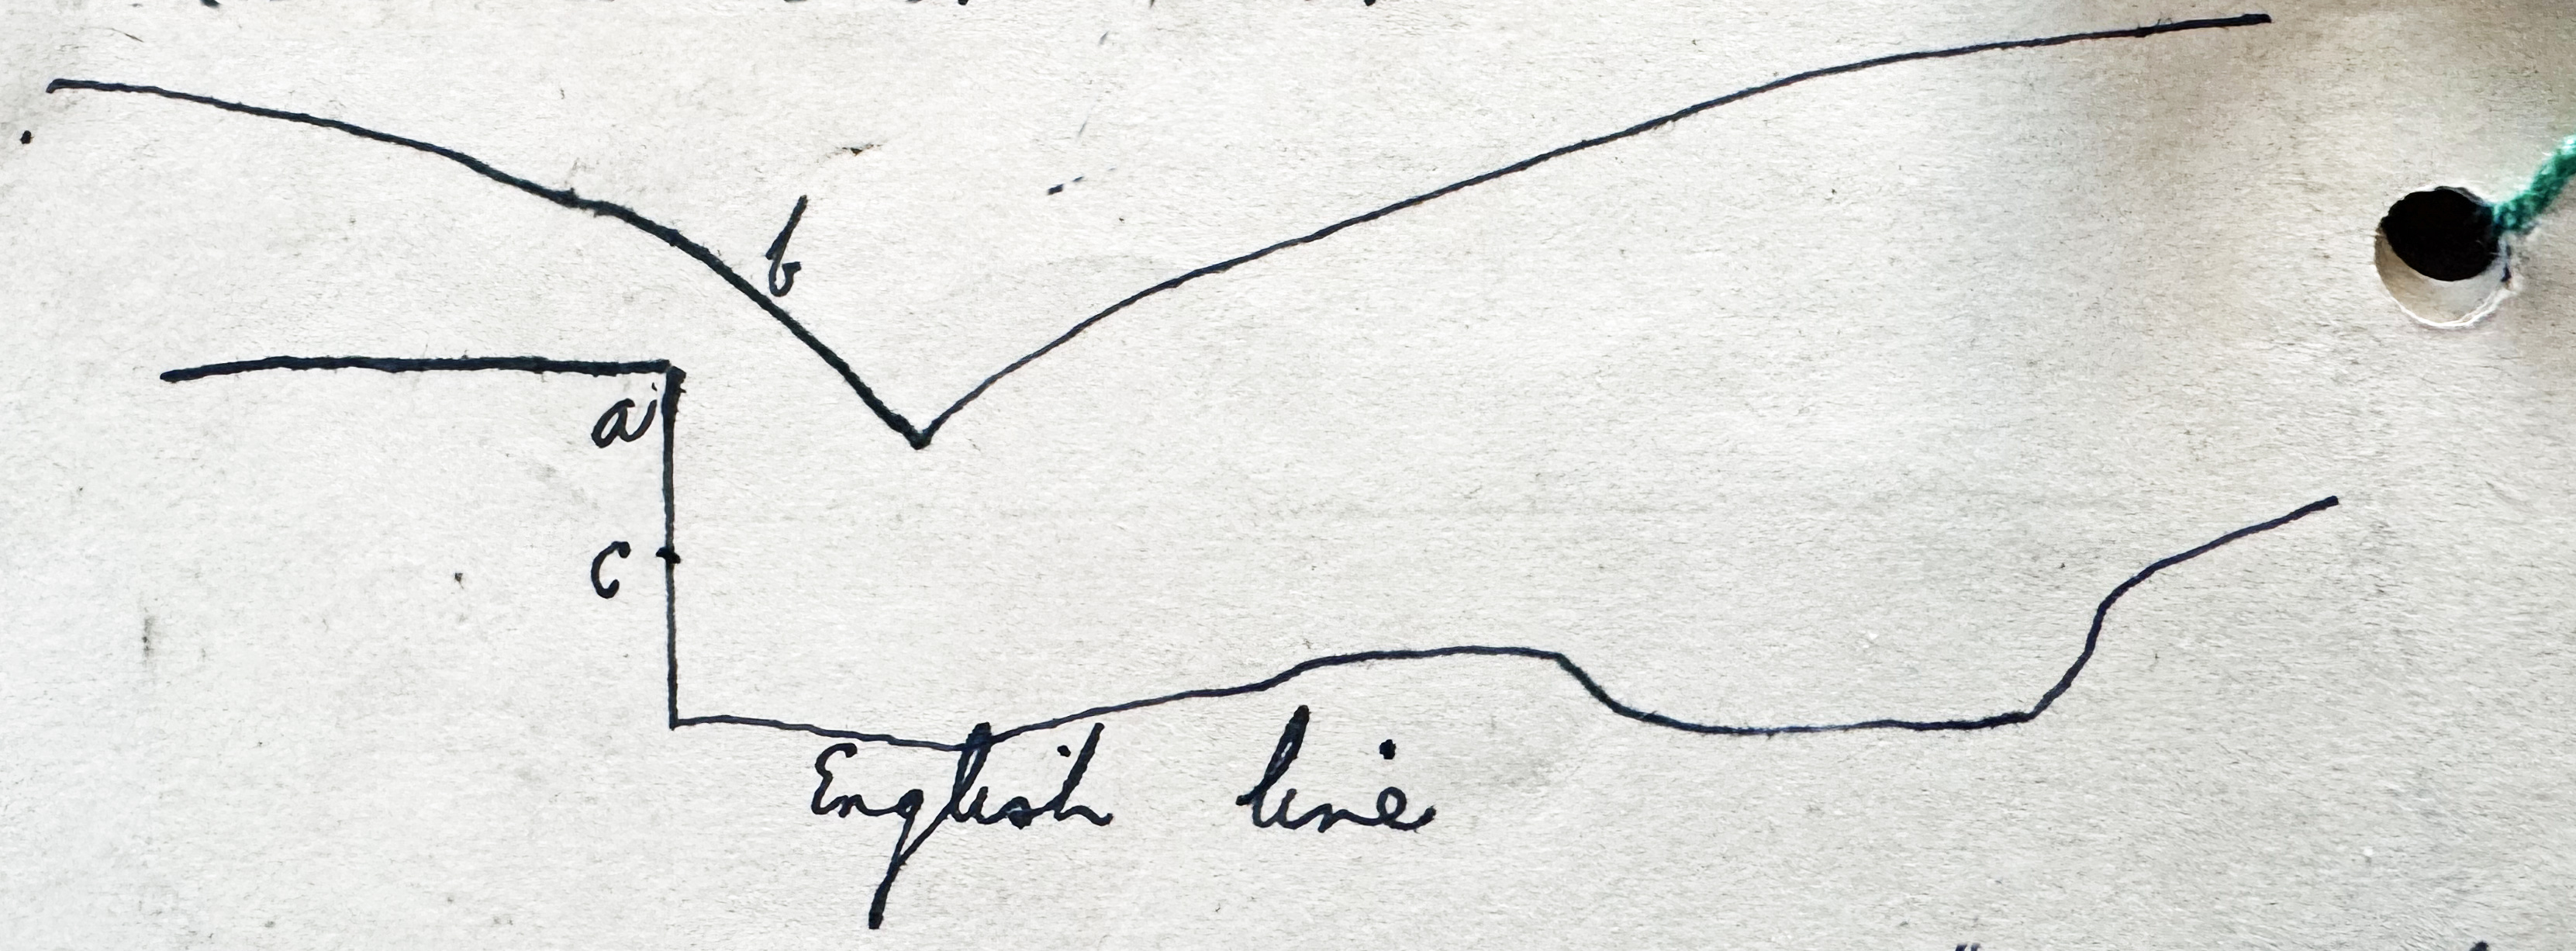 b
a
c
English line